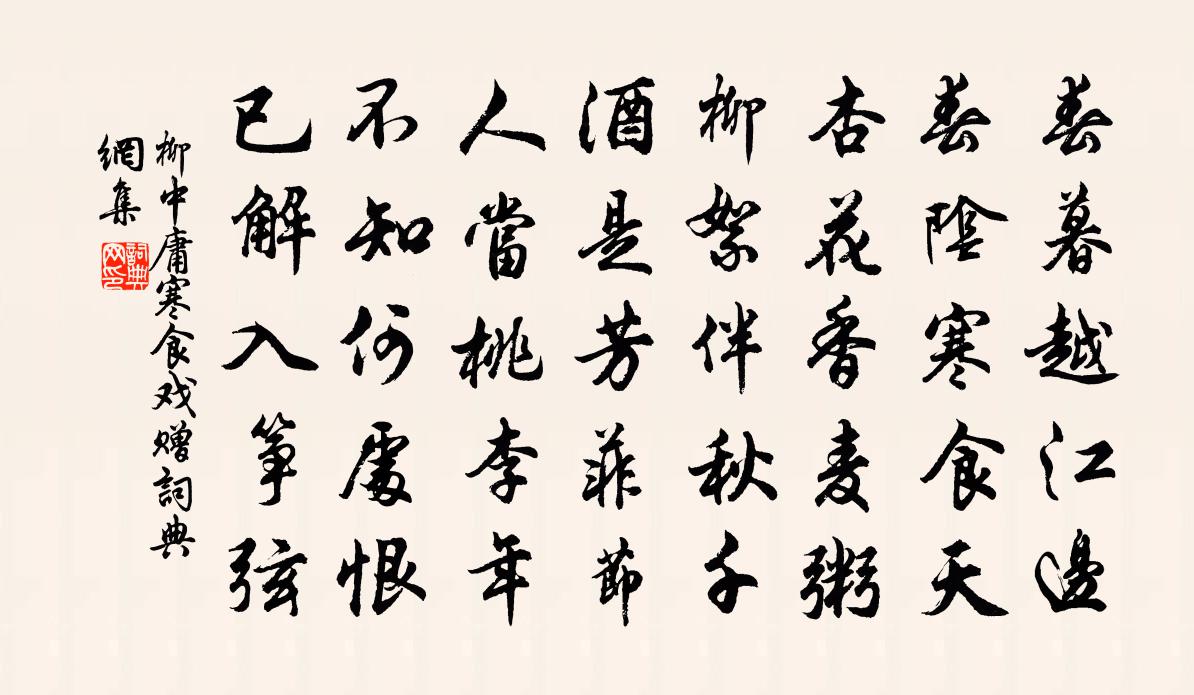 春暮越江邊
春陰寒食天
杏花香麦粥
柳絮伴秋千
酒是芳菲節
人當桃李年
不知何處恨
已解入筝弦
柳中庸寒食戏赠詞典
網集
詞典
网印